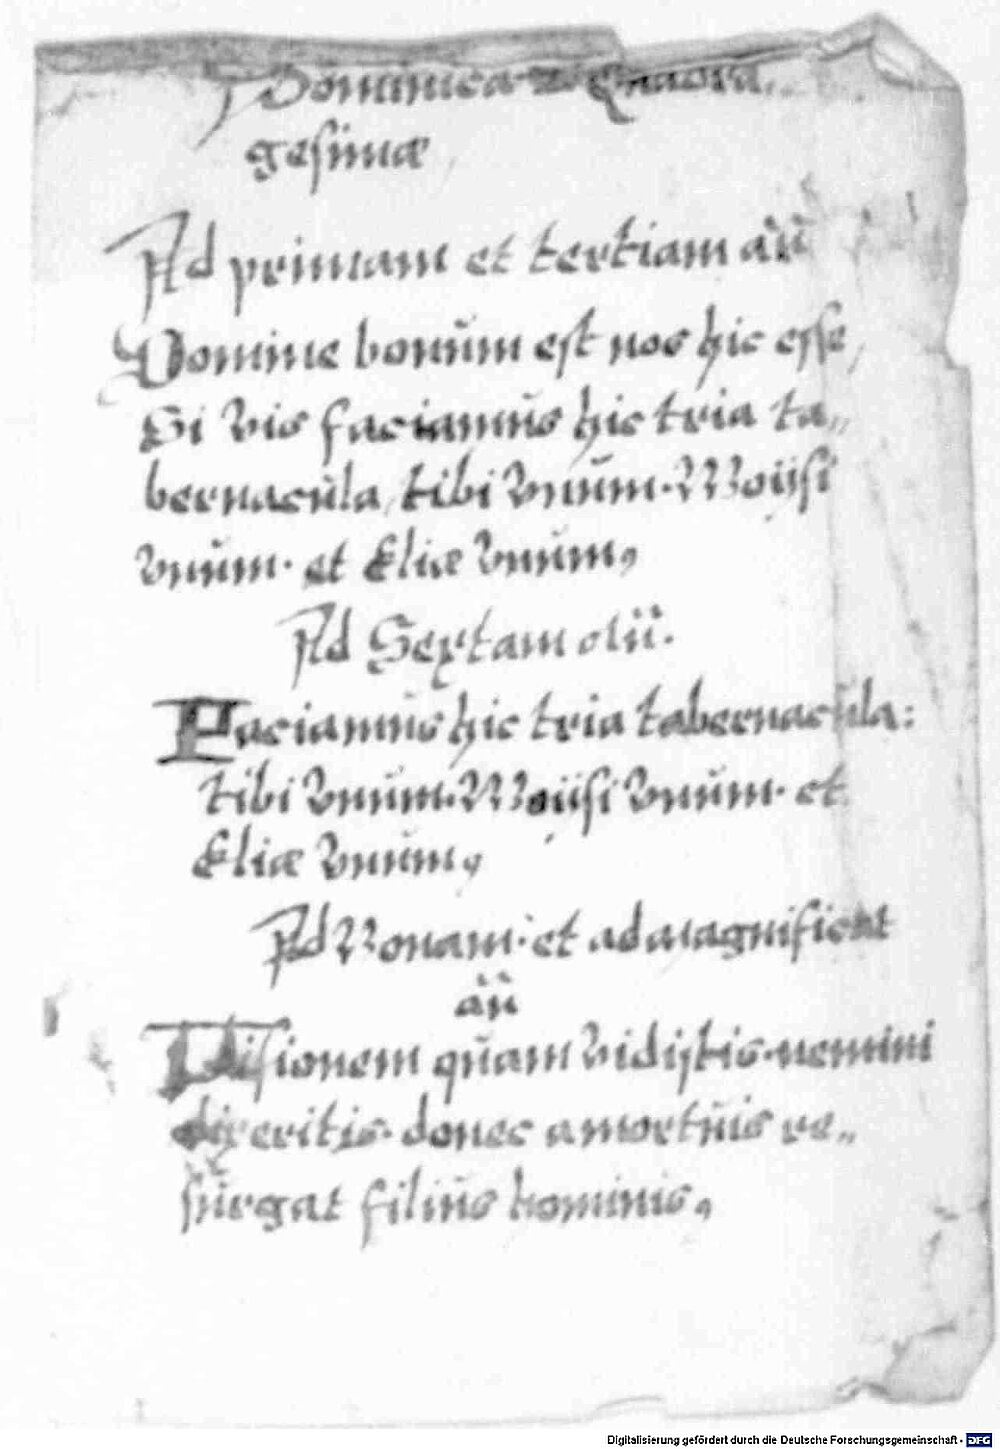 Dominica 2 Quadra,,
gesimæ
Ad primam et tertiam añ
Domine bonum est nos hic esse,
Si vis faciamus hic tria ta,,
bernacula, tibi vnum. Moijsi
vnum. et Eliæ vnum,
Ad Sextam
Faciamus hic tria tabernacula:
tibi vnum. Moijsi vnum. et
Eliæ vnum,
Ad Nonam. et ad magnificat
añ
Visionem quam vidistis. nemini
dixeritis. donec a mortuis re,,
surgat filius hominis,
Digitalisierung gefördert durch die Deutsche Forschungsgemeinschaft - DFG